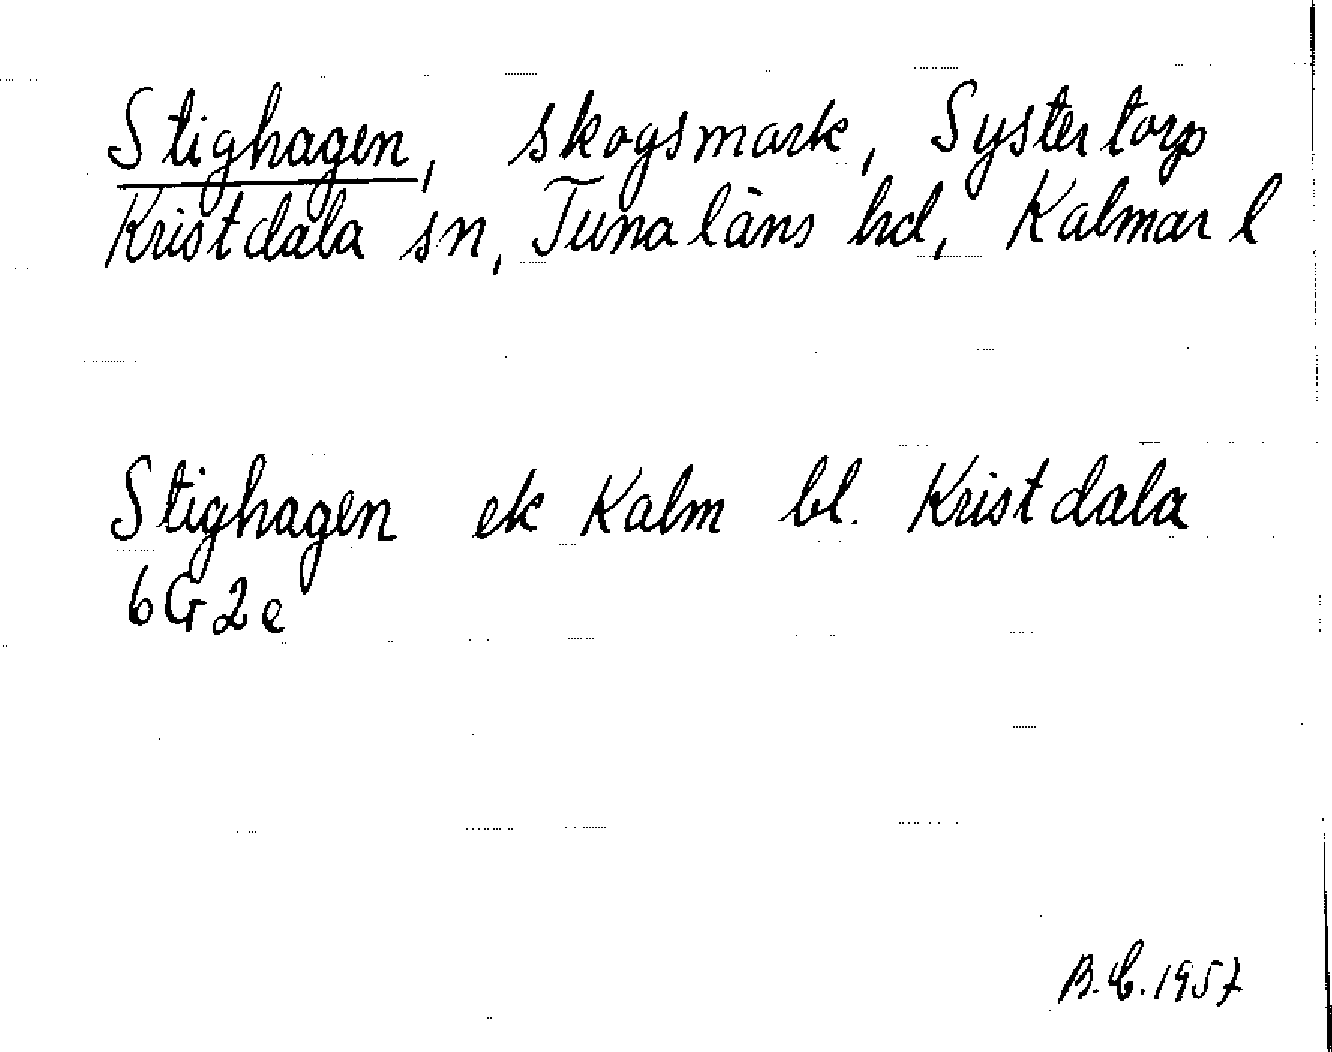 Stighagen, skogsmark, Systertorp
Kristdala sn, Tunaläns hd, Kalmar l
Stighagen ek Kalm bl. Kristdala
6G2e
B.C. 1957